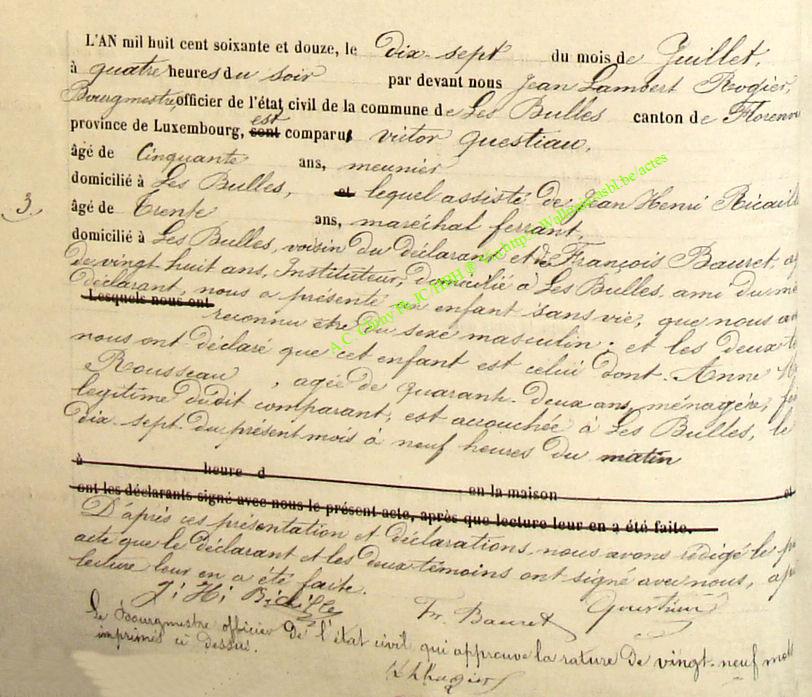 L'AN mil huit cent soixante et douze, le dix-sept du mois de Juillet,
à quatre heures du soir par devant nous Jean Lambert Rogier,
Bourgmestre officier de l'état civil de la commune de Les Bulles canton de Floren
province de Luxembourg, sont est comparu victor questiau,
âgé de Cinquante ans, meunier
domicilié à Les Bulles, et lequel assisté de Jean Henri Bicaill
3 âgé de Trente ans, maréchal ferrant,
domicilié à Les Bulles, voisin du déclarant et de François Bauret, ag
de vingt huit ans, Instituteur, domicilié à Les Bulles, ami du mê
déclarant, nous a présenté un enfant sans vie, que nous av
Lesquels nous ont reconnu être du sexe masculin; et les deux te
nous ont déclaré que cet enfant est celui dont Anne
Rousseau, agée de quarante-deux ans, ménagère, fe
legitime dudit comparant, est accouchée à Les Bulles, le
dix-sept du présent mois à neuf heures du matin
à heure d en la maison et
ont les déclarants signé avec nous le présent acte, après que lecture leur en a été faite.
D'après ces présentation et déclarations, nous avons rédigé le pr
acte que le déclarant et les deux témoins ont signé avec nous, apr
lecture leur en a été faite.
J. H. Bicaille Fr. Bauret Questiau
Le Bourgmestre officier de l'état civil qui approuve la rature de vingt-neuf mots
imprimés ci dessus.